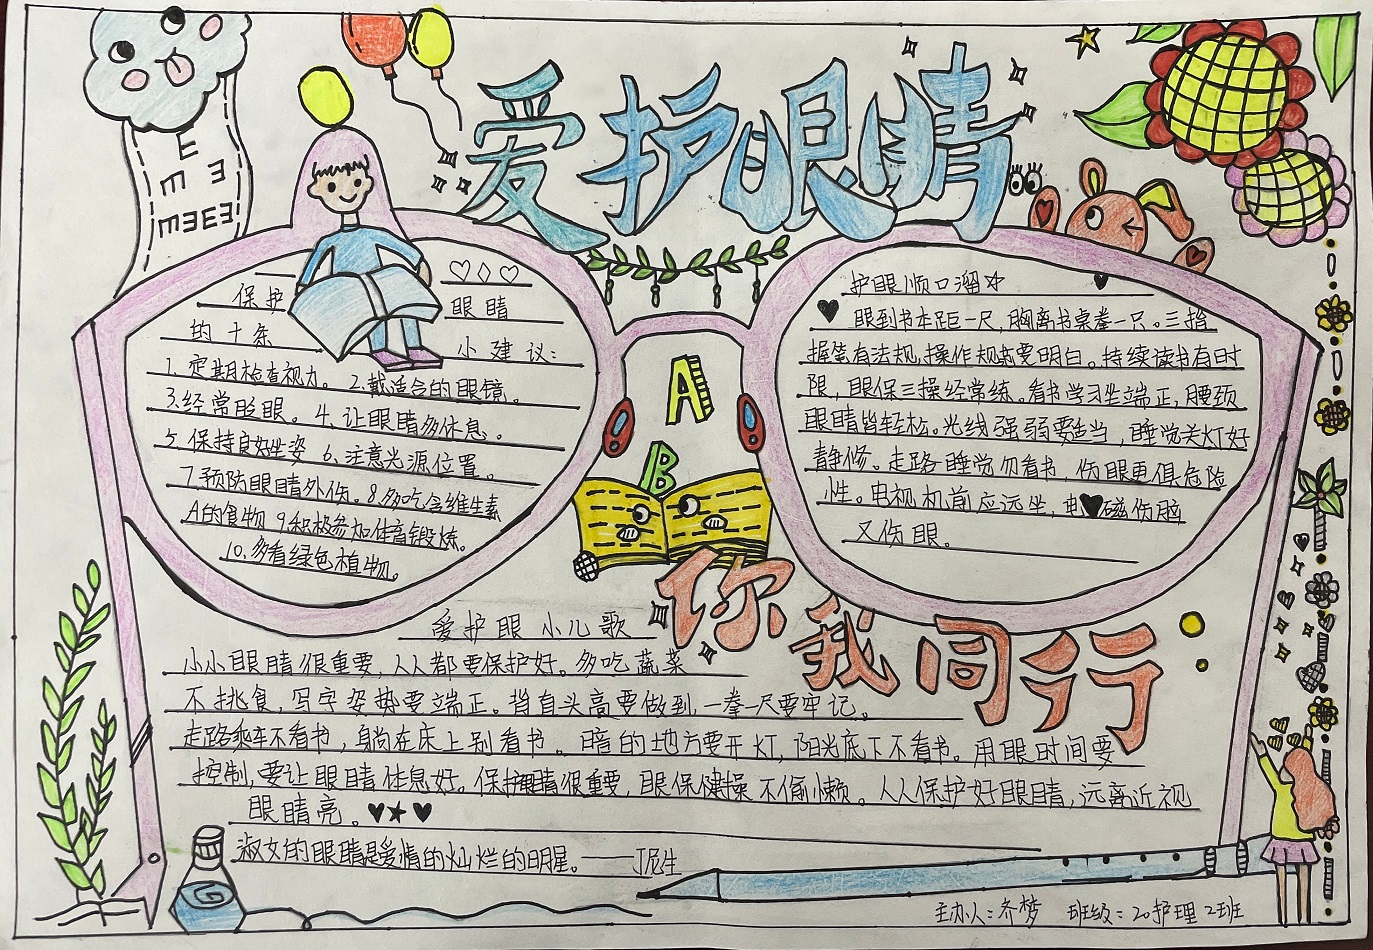 爱护眼睛
E
m E
mEE∃
保护眼睛
的十条小建议：
1.定期检查视力。2.戴适合的眼镜。
3.经常眨眼。4.让眼睛多休息。
5.保持良好坐姿 6.注意光源位置。
7.预防眼睛外伤。8.多吃含维生素
A的食物 9.积极参加体育锻炼。
10.多看绿色植物。
A
B
护眼顺口溜
眼到书本距一尺，胸离书桌拳一只。三指
握笔有法规，操作规章要明白。持续读书有时
限，眼保三操经常练。看书学习坐端正，腰颈
眼睛皆轻松。光线强弱要适当，睡觉关灯好
静修。走路睡觉勿看书，伤眼更俱危险
性。电视机前应远坐，电磁伤脑
又伤眼。
你我同行
爱护眼小儿歌
小小眼睛很重要，人人都要保护好。多吃蔬菜
不挑食，写字姿势要端正。背直头高要做到，一拳一尺要牢记。
走路乘车不看书，身尚在床上别看书。暗的地方要开灯，阳光底下不看书。用眼时间要
控制，要让眼睛休息好。保护眼睛很重要，眼保健操不偷懒。人人保护好眼睛，远离近视
眼睛亮。
淑女的眼睛是爱情的灿烂的明星。——丁尼生
主办人：齐梦 班级：20护理2班